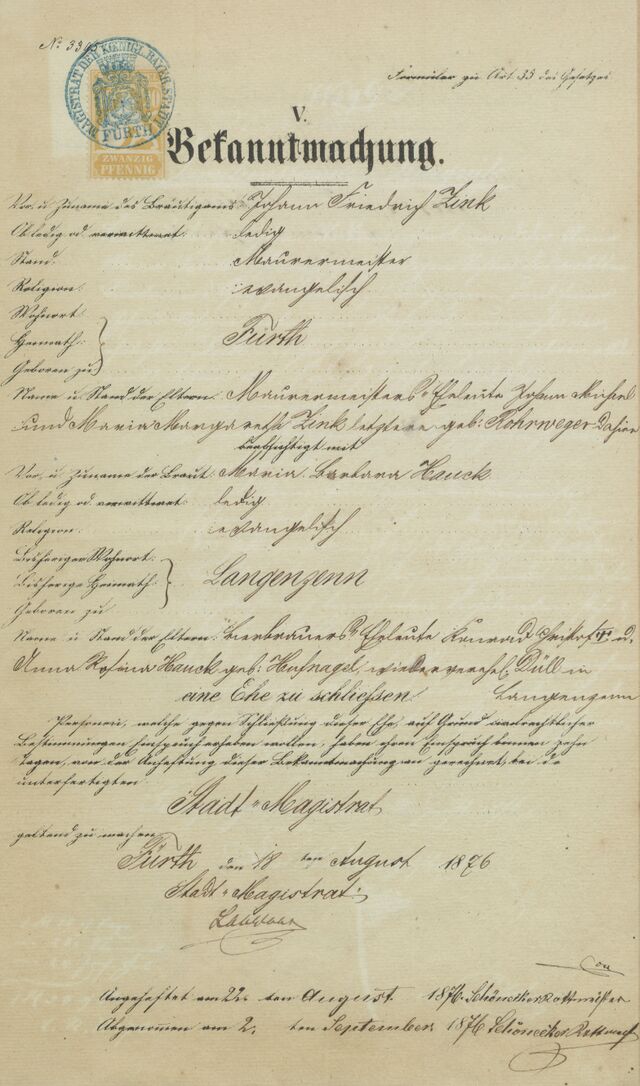 No 3395
MAGISTRAT DER KOENIGL. BAYER. STADT FÜRTH
ZWANZIG
PFENNIG
Formular zu Art. 33 des Gesetzes
V.
Bekanntmachung.
Vor- u Zuname des Bräutigams: Johann Friedrich Zink
Ob ledig od verwittwet: ledig
Stand: Maurermeister
Religion: evangelisch
Wohnort:
Heimath: Fürth
Geboren zu:
Name u. Stand der Eltern: Maurermeisters-Eheleute Johann Michael
und Maria Margaretha Zink letztere geb: Rohrweger dahier
beabsichtigt mit
Vor- u Zuname der Braut: Maria Barbara Hauck
Ob ledig od verwittwet: ledig
Religion: evangelisch
Bisheriger Wohnort:
Bisherige Heimath: Langenzenn
Geboren zu
Name u Stand der Eltern: Bierbrauers-Eheleute Konrad Christof † u.
Anna Rosina Hauck geb: Hufnagel, wiederverehel. Düll in
eine Ehe zu schliessen. Langenzenn
Personen, welche gegen Schließung dieser Ehe, auf Grund civilrechtlicher
Bestimmungen Einspruch erheben wollen, haben ihren Einspruch binnen zehn
Tagen, von der Anheftung dieser Bekanntmachung an gerechnet, bei dem
unterfertigten
Stadt-Magistrat
geltend zu machen.
Fürth den 18 ten August 1876
Stadt-Magistrat:
Angeheftet am 22. ten August 1876. Schönecker Rottmeister
Abgenommen am 2. ten September 1876 Schönecker Rottmeist